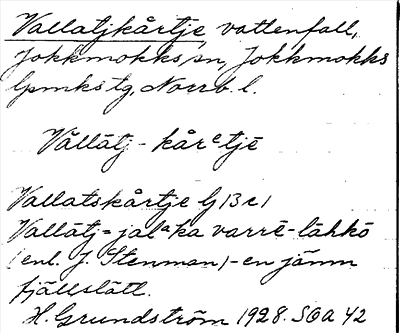 Vallatjkårtje, vattenfall,
Jokkmokks sn, Jokkmokks
lpmks tg, Norrb. l.
Vållātj - kårᵉtjē
Vallatskårtje G 13 c 1
Vallātj = jalᵃka varrē - låhkō
(enl. J. Stenman) - en jämn
fjällslätt.
H. Grundström 1928. SOA 42